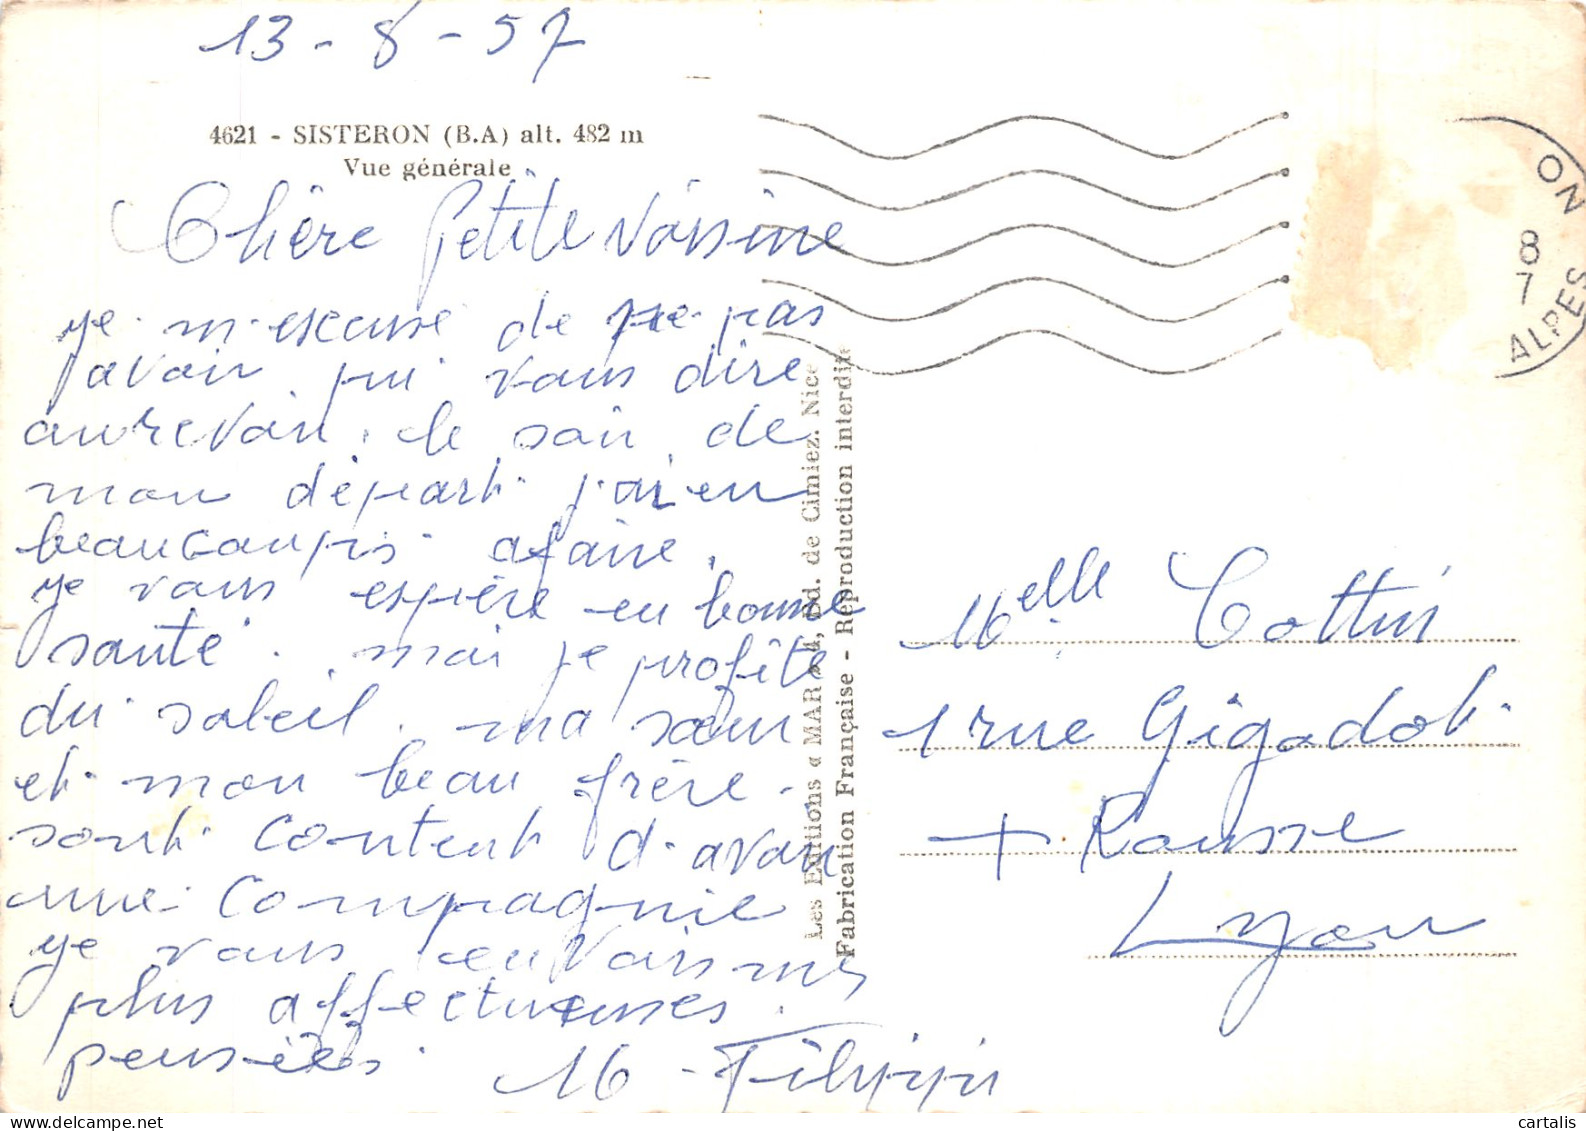 13-8-57
4621 - SISTERON (B.A) alt. 482 m
Vue générale
Chère Petite Voisine
je m'escuse de ne pas
avoir pui vous dire
aurevoir. le soir de
mon départ j'ai eu
beaucoupis afaire.
je vous espère en bonne
santé. mai je profite
du soleil. ma sœur
et mon beau frère.
sont content d'avoir
une compagnie
je vous envois mes
plus affectueuses
pensées. M. Filippi
Les Editions « MAR », Bd. de Cimiez. Nice
Fabrication Française - Reproduction interdite
ON
8
7
ALPES
Melle Cottin
1 rue Gigodot
+ Rousse
Lyon
cartalis.com